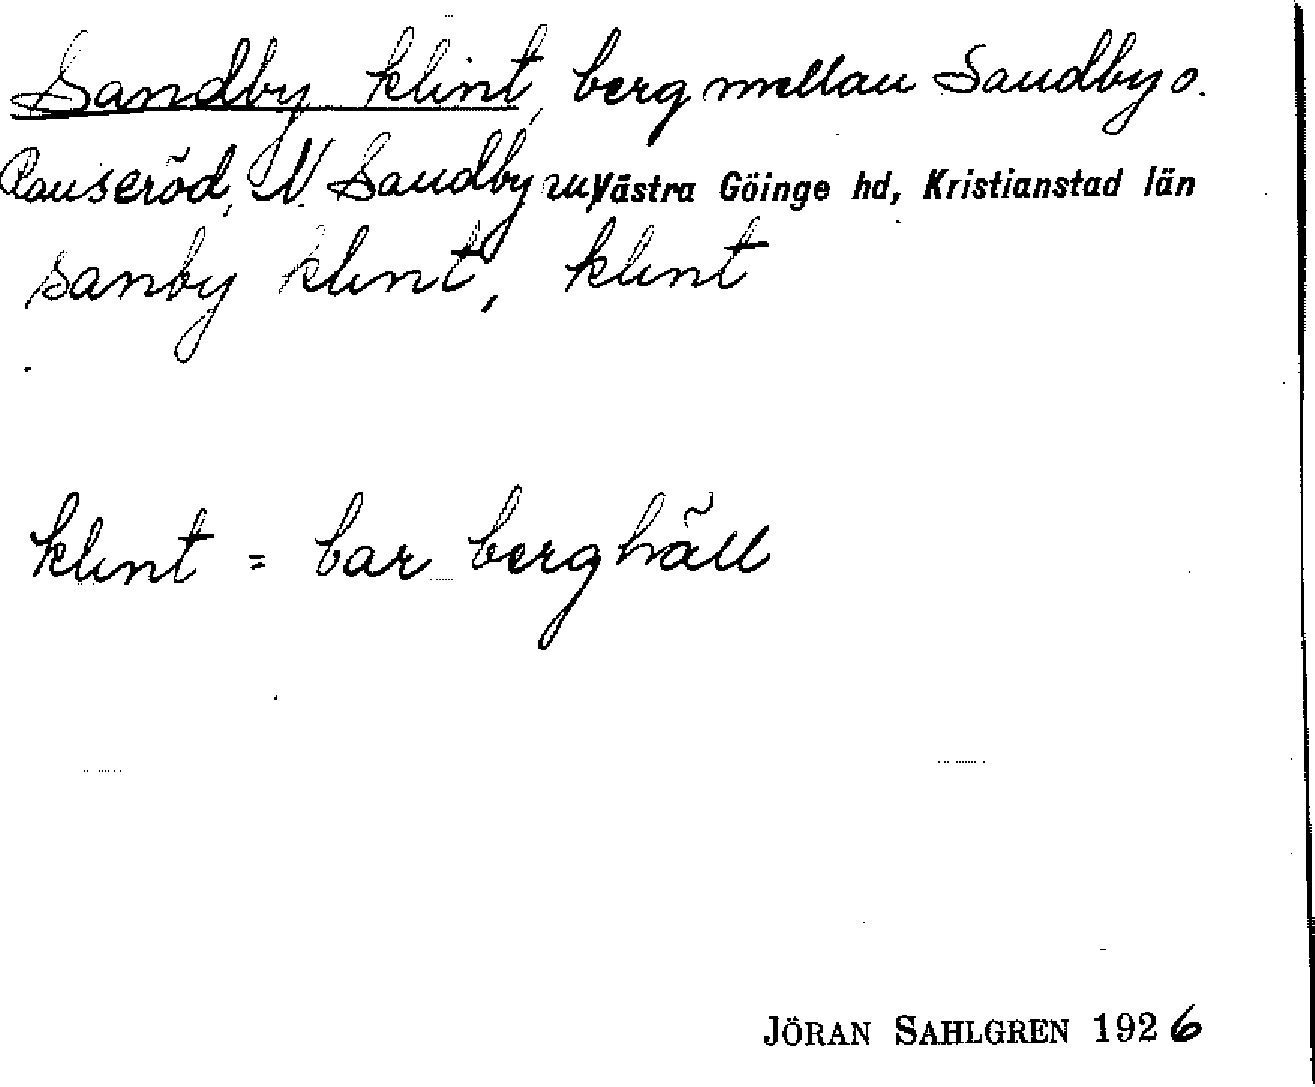 Sandby klint, berg mellan Sandby o.
Ranseröd, N. Sandby sn, Västra Göinge hd, Kristianstad län
sanby klint, klint
klint = bar berghäll
JÖRAN SAHLGREN 1926